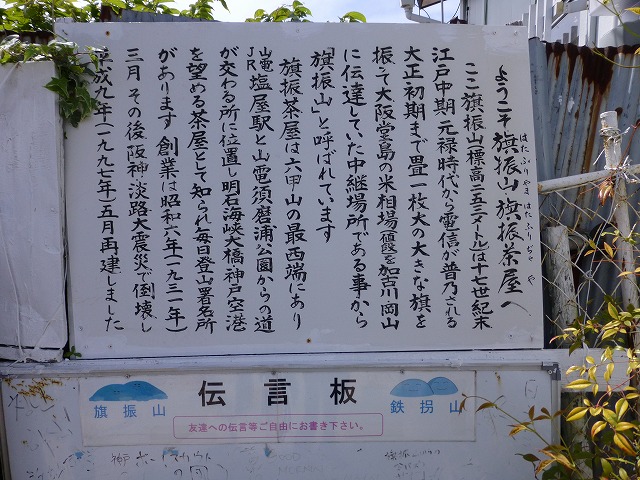 ようこそ旗振山 旗振茶屋へ
はたふりやま はたふりぢゃや
ここ旗振山（標高二五三メートル）は十七世紀末
江戸中期 元禄時代から電信が普及される
大正初期まで畳一枚大の大きな旗を
振って大阪堂島の米相場（値段）を加古川 岡山
に伝達していた中継場所である事から
「旗振山」と呼ばれています
旗振茶屋は六甲山の最西端にあり
山電 JR 塩屋駅と山電須磨浦公園からの道
が交わる所に位置し明石海峡大橋 神戸空港
を望める茶屋として知られ毎日登山署名所
があります 創業は昭和六年（一九三一年）
三月 その後 阪神淡路大震災で倒壊し
平成九年（一九九七年）五月再建しました
伝言板
旗振山
鉄拐山
友達への伝言等ご自由にお書き下さい。